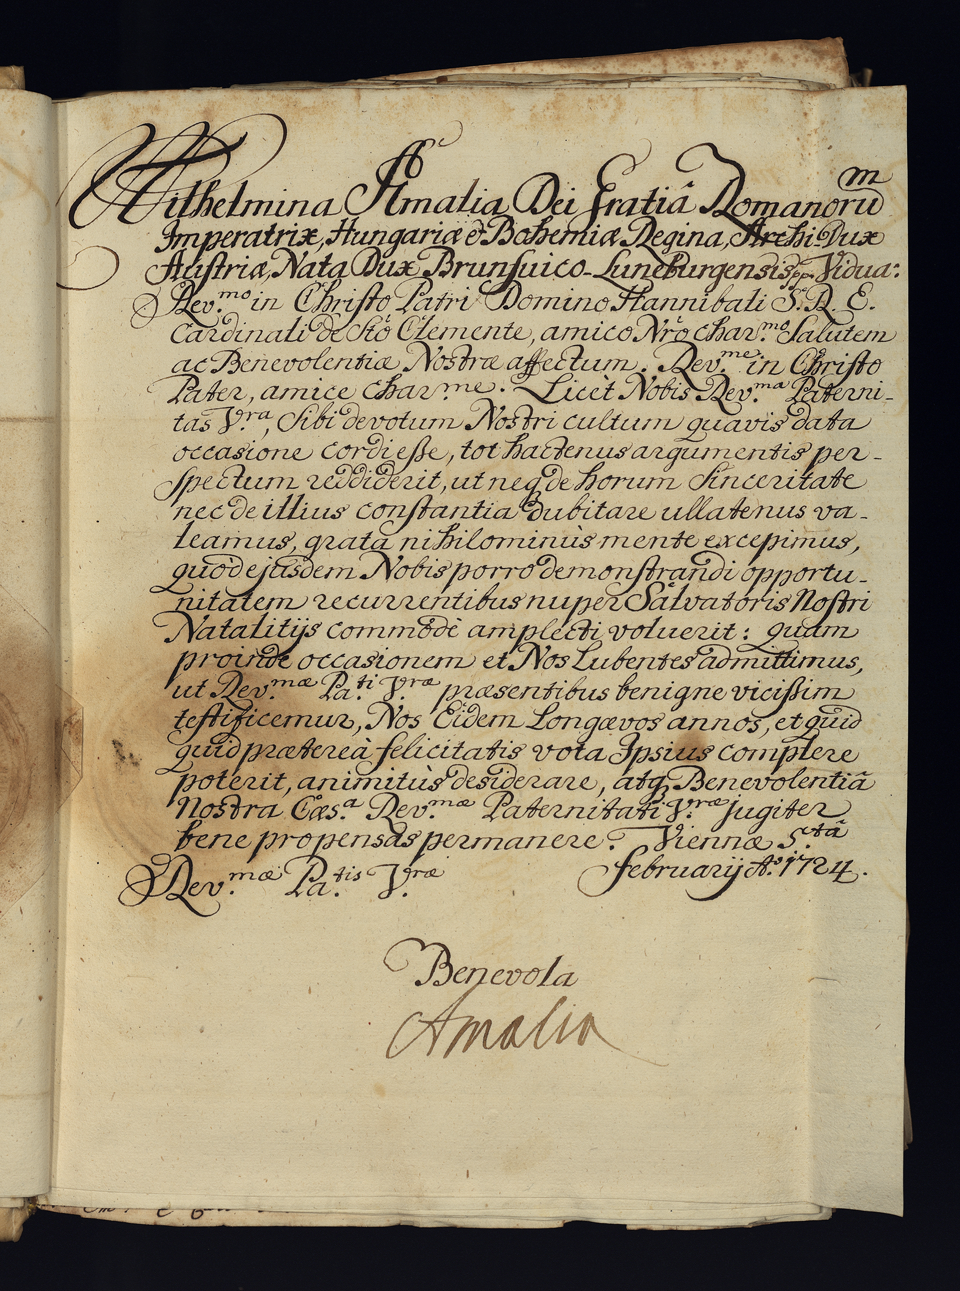 Wilhelmina Amalia Dei Gratiâ Romanorũ
Imperatrix, Hungariæ & Bohemiæ Regina, Archi-Dux
Austriæ, Nata Dux Brunsuico-Luneburgensis pp. Vidua:
Rev.mo in Christo Patri Domino Hannibali S. R. E.
Cardinali de Sto Clemente, amico Nrõ char.mo Salutem
ac Benevolentiæ Nostræ affectum. Rev.me in Christo
Pater, amice char.me. Licet Nobis Rev.ma Paterni-
tas V.ra, Sibi devotum Nostri cultum quavis data
occasione cordi esse, tot hactenus argumentis per-
spectum reddiderit, ut neq de horum Sinceritate
nec de illius constantia dubitare ullatenus va-
leamus, grata nihilominùs mente excepimus,
quòd ejusdem Nobis porro demonstrandi opportu-
nitatem recurrentibus nuper Salvatoris Nostri
Natalitijs commodè amplecti voluerit: quam
proinde occasionem et Nos Lubentes admittimus,
ut Rev.mæ Pa.ti V.ræ præsentibus benigne vicissim
testificemur, Nos Eidem Longævos annos, et quid
quid prætereà felicitatis vota Ipsius complere
poterit, animitùs desiderare, atq Benevolentiâ
Nostra Cæs.a Rev.mæ Paternitati V.ræ jugiter
bene propensas permanere. Viennæ 5.tâ
Rev.mæ Pa.tis V.ræ Februarij Aº. 1724.
Benevola
Amalia